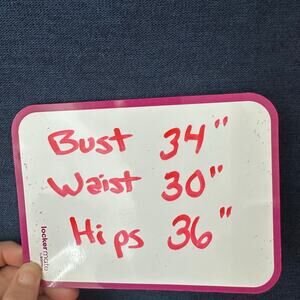 Bust 34"
Waist 30"
Hips 36"
lockermate